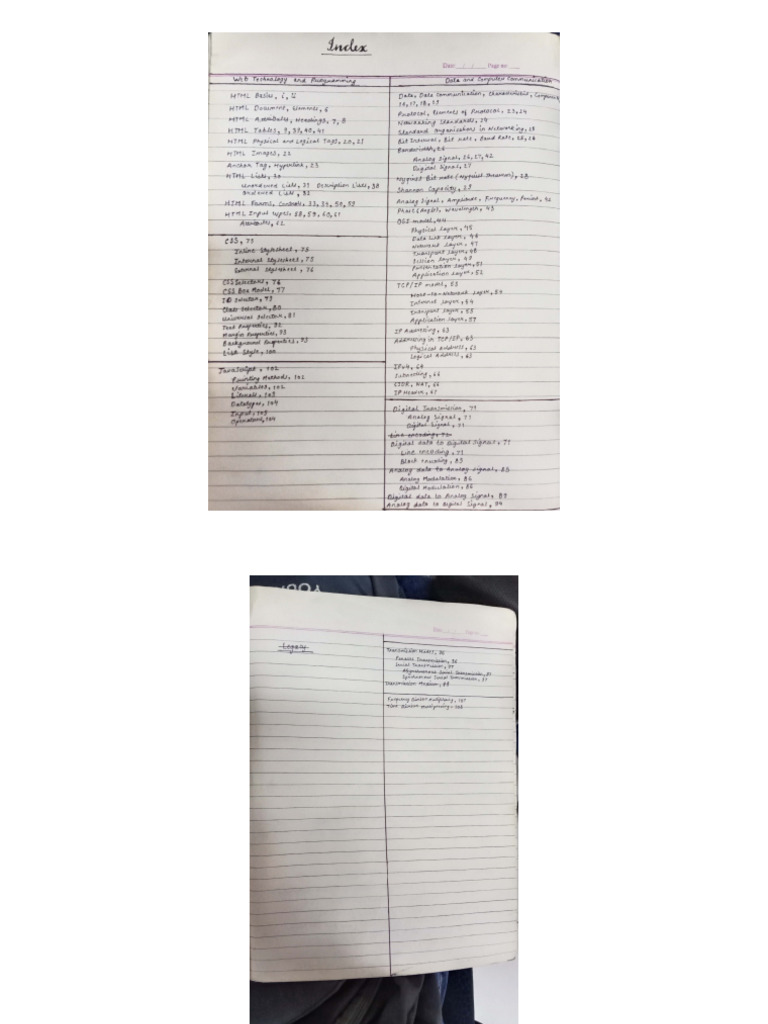 Index
Date: / / Page no:
Web Technology and Programming
HTML Basics, i, ii
HTML Document, Elements, 6
HTML Attributes, Headings, 7, 8
HTML Tables, 9, 39, 40, 41
HTML Physical and Logical Tags, 20, 21
HTML Images, 22
Anchor Tag, Hyperlink, 23
HTML Lists, 30
Unordered Lists, 31 Description Lists, 38
Ordered Lists, 32
HTML Forms, Controls, 33, 34,
HTML Input types, 58, 59, 60, 61
Attributes, 62
CSS, 75
Inline Stylesheet, 75
Internal Stylesheet, 75
External Stylesheet, 76
CSS Selectors, 76
CSS Box Model, 77
ID Selector, 79
Class Selector, 80
Universal Selector, 81
Text Properties, 92
Margin Properties, 93
Background Properties, 93
List Style, 100
JavaScript, 102
Printing Methods, 102
Variables, 102
Literals, 103
Datatypes, 104
Input, 103
Operators, 104
Data and Computer Communication
Data, Data Communication, Characteristics, Components
16, 17, 18, 19
Protocol, Elements of Protocol, 23, 24
Networking Standards, 24
Standard Organizations in Networking, 25
Bit Interval, Bit Rate, Baud Rate, 25, 26
Bandwidth, 26
Analog Signal, 26, 27, 42
Digital Signal, 27
Nyquist Bit Rate (Nyquist Theorem), 28
Shannon Capacity, 29
Analog Signal, Amplitude, Frequency, Period, 42
Phase (Angle), Wavelength, 43
OSI model, 44
Physical Layer, 45
Data Link Layer, 46
Network Layer, 47
Transport Layer, 48
Session Layer, 49
Presentation Layer, 51
Application Layer, 52
TCP/IP model, 53
Host-to-Network Layer, 54
Internet Layer, 54
Transport Layer, 55
Application Layer, 57
IP Addressing, 63
Addressing in TCP/IP, 63
Physical Address, 63
Logical Address, 63
IPv4, 64
Subnetting, 66
CIDR, NAT, 66
IP Header, 67
Digital Transmission, 71
Analog Signal, 71
Digital Signal, 71
Line Encoding, 72
Digital data to Digital Signals, 71
Line encoding, 71
Block encoding, 83
Analog data to Analog Signal, 85
Analog Modulation, 86
Digital Modulation, 86
Digital data to Analog Signal, 89
Analog data to Digital Signal, 94
Transmission Modes, 96
Parallel Transmission, 96
Serial Transmission, 97
Asynchronous Serial Transmission, 97
Synchronous Serial Transmission, 97
Transmission Medium, 98
Frequency Division Multiplexing, 107
Time Division Multiplexing, 108